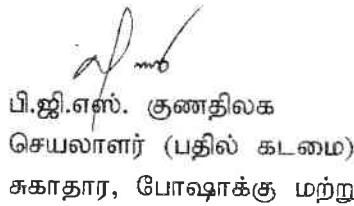 பி.ஜி.எஸ். குணதிலக
செயலாளர் (பதில் கடமை)
சுகாதார, போஷாக்கு மற்று